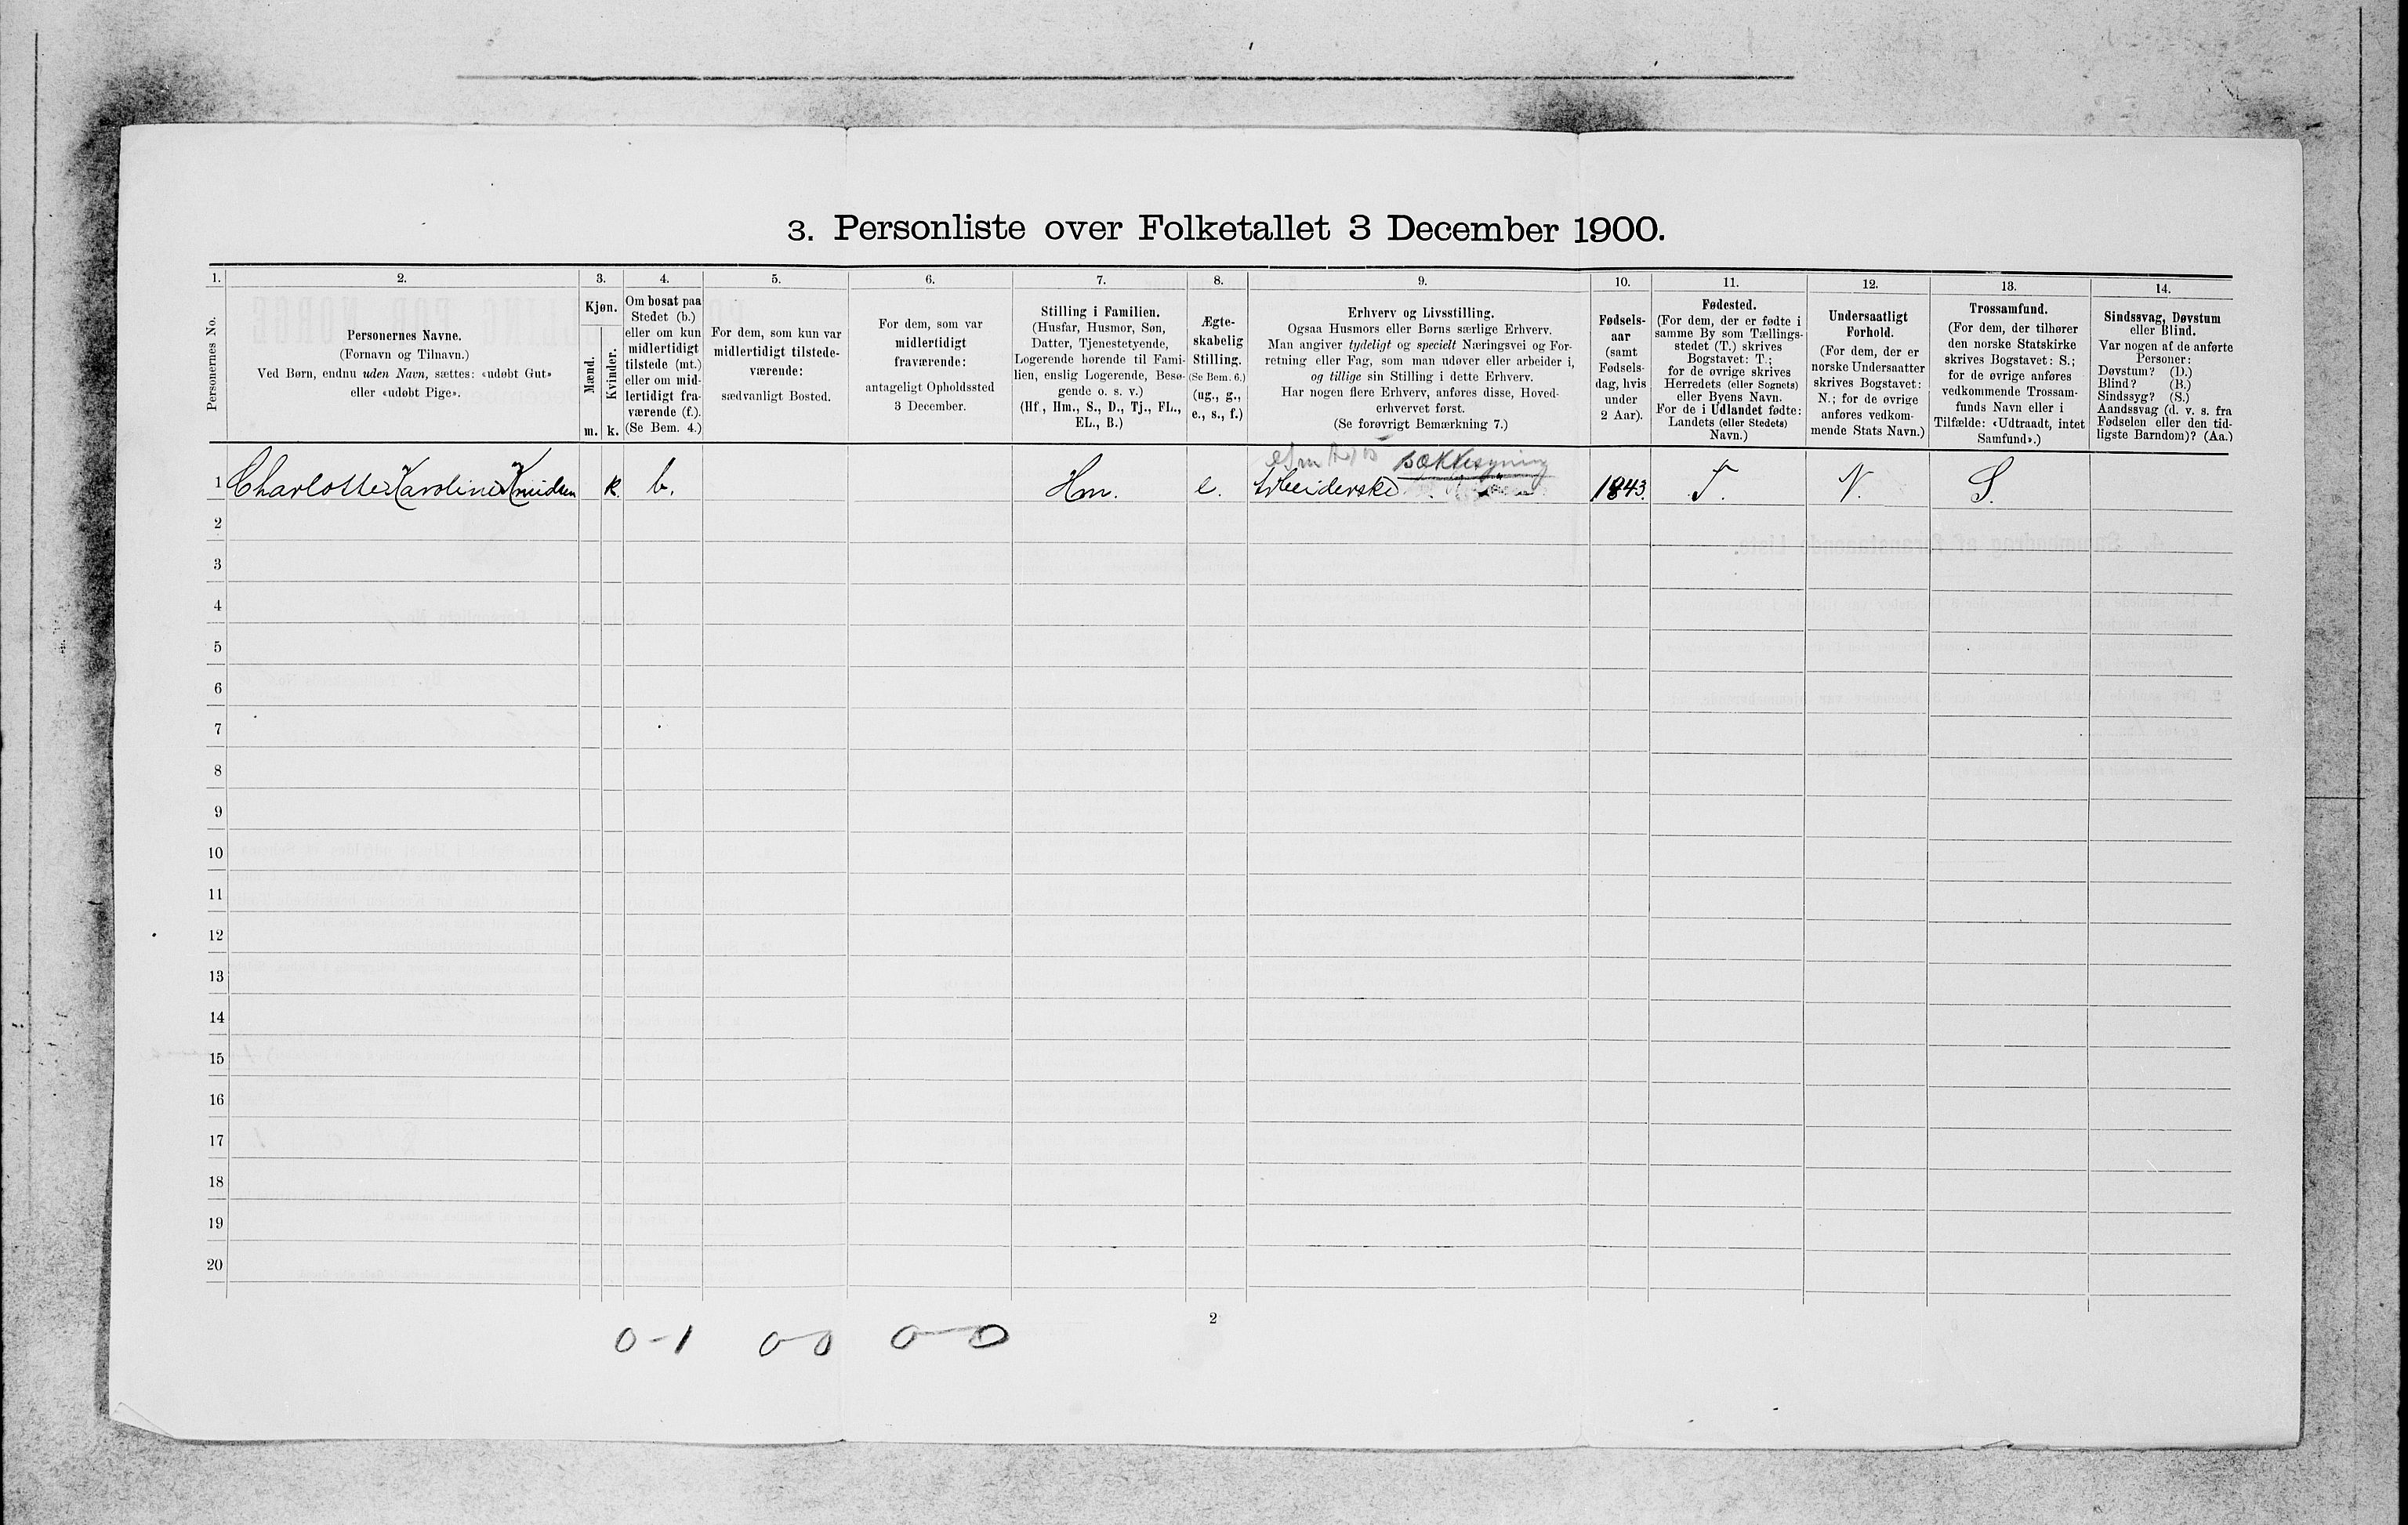 3. Personliste over Folketallet 3 December 1900.
1. 2. 3. 4. 5. 6. 7. 8. 9. 10. 11. 12. 13. 14.
Personernes No.
Personernes Navne.
(Fornavn og Tilnavn.)
Ved Børn, endnu uden Navn, sættes: «udøbt Gut»
eller «udøbt Pige».
Kjøn.
Mænd.
Kvinder.
m. k.
Om bosat paa
Stedet (b.)
eller om kun
midlertidigt
tilstede (mt.)
eller om mid-
lertidigt fra-
værende (f.).
(Se Bem. 4.)
For dem, som kun var
midlertidigt tilstede-
værende:
sædvanligt Bosted.
For dem, som var
midlertidigt
fraværende:
antageligt Opholdssted
3 December.
Stilling i Familien.
(Husfar, Husmor, Søn,
Datter, Tjenestetyende,
Logerende hørende til Fami-
lien, enslig Logerende, Besø-
gende o. s. v.)
(Hf., Hm., S., D., Tj., FL.,
EL., B.)
Ægte-
skabelig
Stilling.
(Se Bem. 6.)
(ug., g.,
e., s., f.)
Erhverv og Livsstilling.
Ogsaa Husmors eller Børns særlige Erhverv.
Man angiver tydeligt og specielt Næringsvei og For-
retning eller Fag, som man udøver eller arbeider i,
og tillige sin Stilling i dette Erhverv.
Har nogen flere Erhverv, anføres disse, Hoved-
erhvervet først.
(Se forøvrigt Bemærkning 7.)
Fødsels-
aar
(samt
Fødsels-
dag, hvis
under
2 Aar).
Fødested.
(For dem, der er fødte i
samme By som Tællings-
stedet (T.) skrives
Bogstavet: T.;
for de øvrige skrives
Herredets (eller Sognets)
eller Byens Navn.
For de i Udlandet fødte:
Landets (eller Stedets)
Navn.)
Undersaatligt
Forhold.
(For dem, der er
norske Undersaatter
skrives Bogstavet:
N.; for de øvrige
anføres vedkom-
mende Stats Navn.)
Trossamfund.
(For dem, der tilhører
den norske Statskirke
skrives Bogstavet: S.;
for de øvrige anføres
vedkommende Trossam-
funds Navn eller i
Tilfælde: «Udtraadt, intet
Samfund».)
Sindssvag, Døvstum
eller Blind.
Var nogen af de anførte
Personer:
Døvstum? (D.)
Blind? (B.)
Sindssyg? (S.)
Aandssvag (d. v. s. fra
Fødselen eller den tid-
ligste Barndom)? (Aa.)
1 Charlotte Karoline Knudsen k. b. Hm. e. Arbeiderske Sækkesyning 1843. T. N. S.
2
3
4
5
6
7
8
9
10
11
12
13
14
15
16
17
18
19
20
2
0-1 0-0 0-0